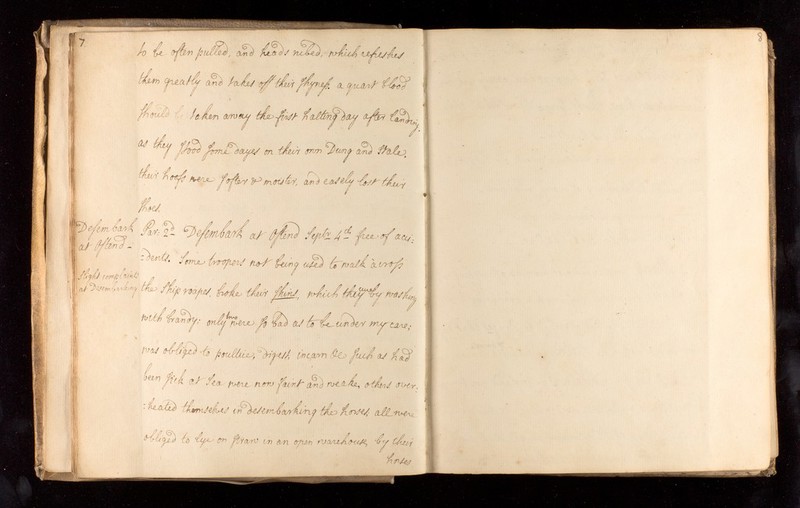 7.
to be often pulled, and heads rubed, which refreshes
them greatly and takes off their Shyness, a quart blood
Should be taken away the first halting day after landing,
as they stood some dayes on their own Dung and Stale,
their hoofs were softer & moister, and easely lost their
Shoes.
Desem bark
at Ostend -
Par: 2d Desembark at Ostend Septbr 4th free of acci:
:dents. Some troopers not being used to walk across
Slight complaints
at Desembarking
the Ship roapes, broke their Shins, which they cured by washing
with brandy: only two were so bad as to be under my care;
was obliged to poultice, digest, incarn &c Such as had
been Sick at Sea were now faint and weake, others over:
:heated themselves in desembarking the horses, all were
obliged to Lye on straw in an open warehouse, by their
horses
8